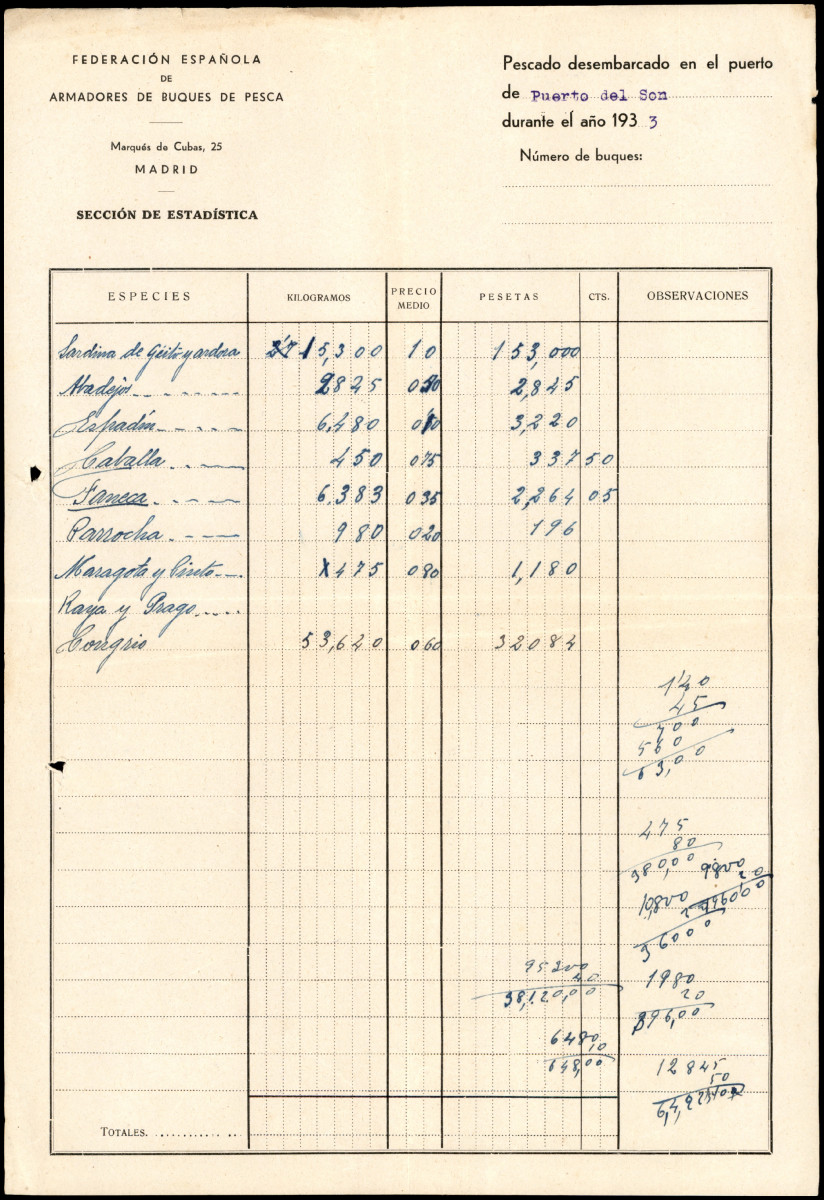 FEDERACIÓN ESPAÑOLA
DE
ARMADORES DE BUQUES DE PESCA
Marqués de Cubas, 25
MADRID
SECCIÓN DE ESTADÍSTICA
Pescado desembarcado en el puerto
de Puerto del Son
durante el año 1933
Número de buques:
ESPECIES KILOGRAMOS PRECIO MEDIO PESETAS CTS. OBSERVACIONES
Sardina de y ardora 15,300 10 153,000
Abadejo 2825 0 50 2,845
Espadin 6,480 0 10 3,220
Caballa 450 0 75 337 50
Faneca 6.383 0 35 2,264 05
Parrocha 980 0 20 196
Maragota y Pinto 475 0 80 1,180
Raya y Prago
Congrio 53,640 0 60 32084
1'40
45
700
560
63,00
475
80
380,00
9800
20
10,800
36000
95300
40
38,120,00
1980
20
396,00
6480
10
648,00
12845
50
TOTALES.